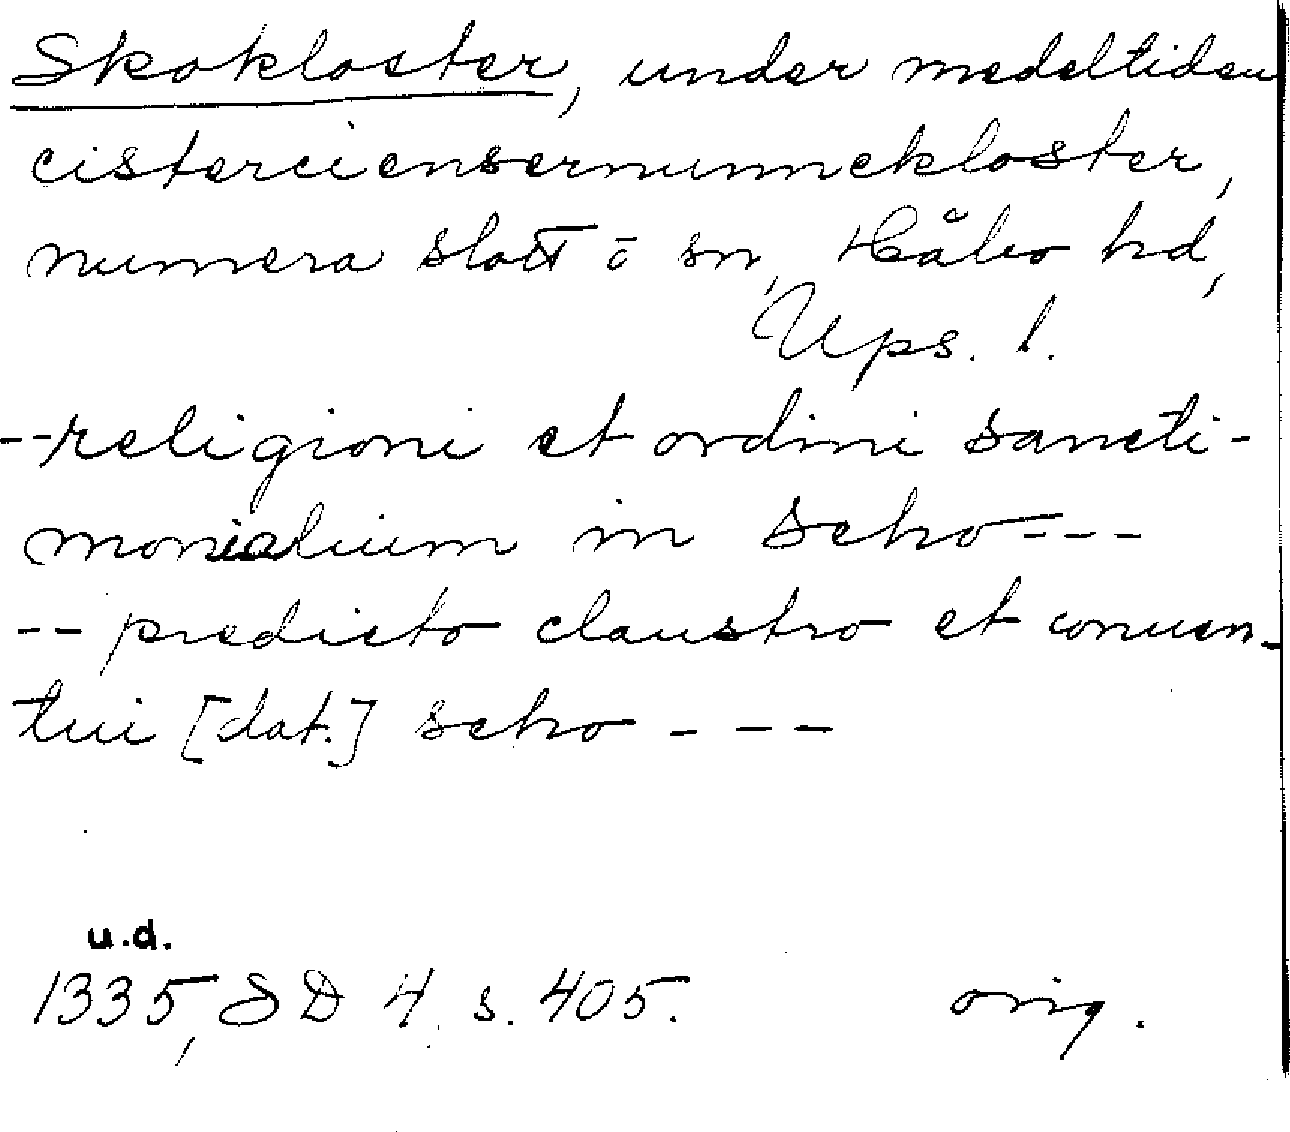 Skokloster, under medeltiden
cisterciensernunnekloster,
numera slott o sn, Håbo hd,
Ups. l.
--religioni et ordini sancti-
monialium in scho---
-- predicto claustro et conuen-
tui [dat.] scho ---
u.d.
1335, SD 4 s. 405. orig.